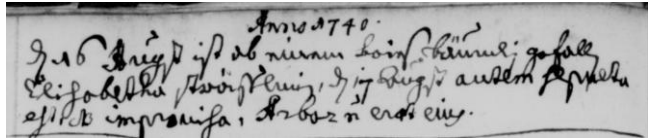 Anno 1740.
D 16 Augst ist ab einem kries bäumli gefalln
Elisabetha , D 17 Augst autem sepulta
est improvisa, Arbor n̄ erat eius.